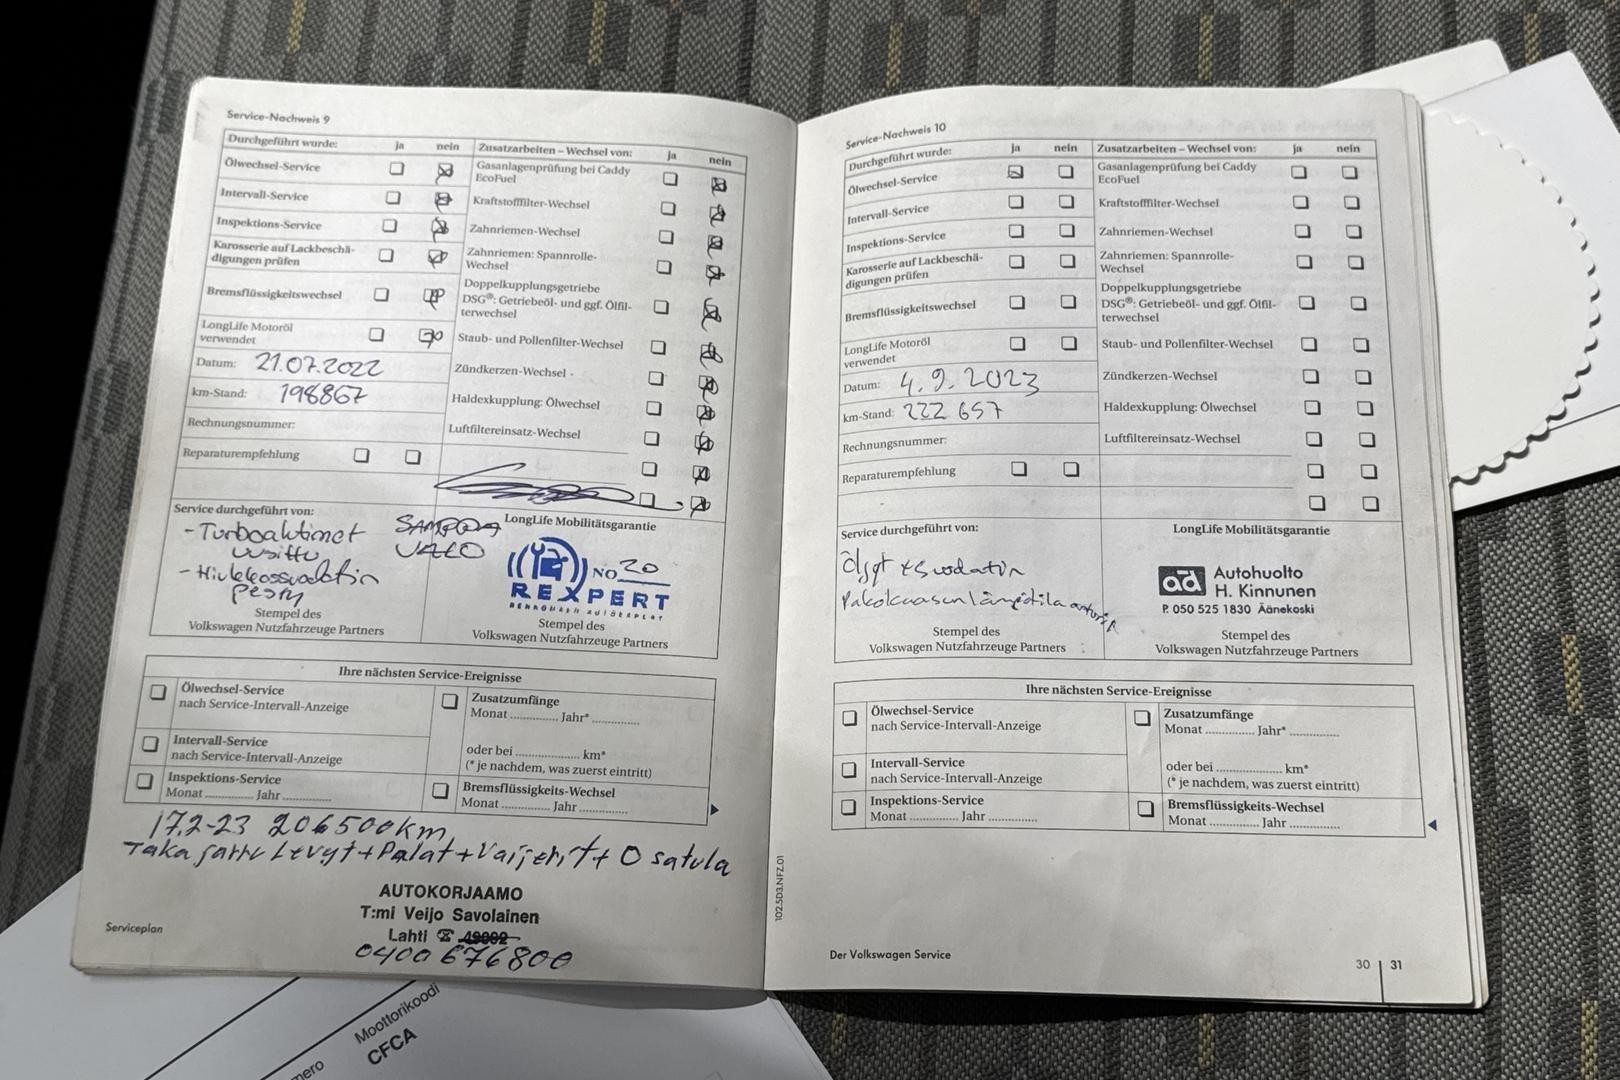 Service-Nachweis 9
Durchgeführt wurde: ja nein
Ölwechsel-Service
Intervall-Service
Inspektions-Service
Karosserie auf Lackbeschä-
digungen prüfen
Bremsflüssigkeitswechsel
LongLife Motoröl
verwendet
Datum: 21.07.2022
km-Stand: 198867
Rechnungsnummer:
Reparaturempfehlung
Zusatzarbeiten – Wechsel von: ja nein
Gasanlagenprüfung bei Caddy
EcoFuel
Kraftstofffilter-Wechsel
Zahnriemen-Wechsel
Zahnriemen: Spannrolle-
Wechsel
Doppelkupplungsgetriebe
DSG®: Getriebeöl- und ggf. Ölfil-
terwechsel
Staub- und Pollenfilter-Wechsel
Zündkerzen-Wechsel
Haldexkupplung: Ölwechsel
Luftfiltereinsatz-Wechsel
Service durchgeführt von:
- Turboahtimet
uusittu
- Hiukkassuodatin
pesty
Stempel des
Volkswagen Nutzfahrzeuge Partners
SAMPPA
VALO
LongLife Mobilitätsgarantie
NO 20
REXPERT
Stempel des
Volkswagen Nutzfahrzeuge Partners
Ihre nächsten Service-Ereignisse
Ölwechsel-Service
nach Service-Intervall-Anzeige
Intervall-Service
nach Service-Intervall-Anzeige
Inspektions-Service
Monat .............. Jahr ..............
Zusatzumfänge
Monat .............. Jahr* ..............
oder bei .................. km*
(* je nachdem, was zuerst eintritt)
Bremsflüssigkeits-Wechsel
Monat .............. Jahr ..............
17.2-23 206500km
Taka jarru Levyt+Palat+Vaijerit+ O satula
AUTOKORJAAMO
T:mi Veijo Savolainen
Lahti ☎ 49092
0400 676800
Serviceplan
Service-Nachweis 10
Durchgeführt wurde: ja nein
Ölwechsel-Service
Intervall-Service
Inspektions-Service
Karosserie auf Lackbeschä-
digungen prüfen
Bremsflüssigkeitswechsel
LongLife Motoröl
verwendet
Datum: 4.9.2023
km-Stand: 222 657
Rechnungsnummer:
Reparaturempfehlung
Zusatzarbeiten – Wechsel von: ja nein
Gasanlagenprüfung bei Caddy
EcoFuel
Kraftstofffilter-Wechsel
Zahnriemen-Wechsel
Zahnriemen: Spannrolle-
Wechsel
Doppelkupplungsgetriebe
DSG®: Getriebeöl- und ggf. Ölfil-
terwechsel
Staub- und Pollenfilter-Wechsel
Zündkerzen-Wechsel
Haldexkupplung: Ölwechsel
Luftfiltereinsatz-Wechsel
Service durchgeführt von:
Öljyt + suodatin
Pakokaasun lämpötila anturi
Stempel des
Volkswagen Nutzfahrzeuge Partners
LongLife Mobilitätsgarantie
ad Autohuolto
H. Kinnunen
P. 050 525 1830 Äänekoski
Stempel des
Volkswagen Nutzfahrzeuge Partners
Ihre nächsten Service-Ereignisse
Ölwechsel-Service
nach Service-Intervall-Anzeige
Intervall-Service
nach Service-Intervall-Anzeige
Inspektions-Service
Monat .............. Jahr ..............
Zusatzumfänge
Monat .............. Jahr* ..............
oder bei .................. km*
(* je nachdem, was zuerst eintritt)
Bremsflüssigkeits-Wechsel
Monat .............. Jahr ..............
102.5D3.NFZ.01
Der Volkswagen Service
30 31
Moottorikoodi
CFCA